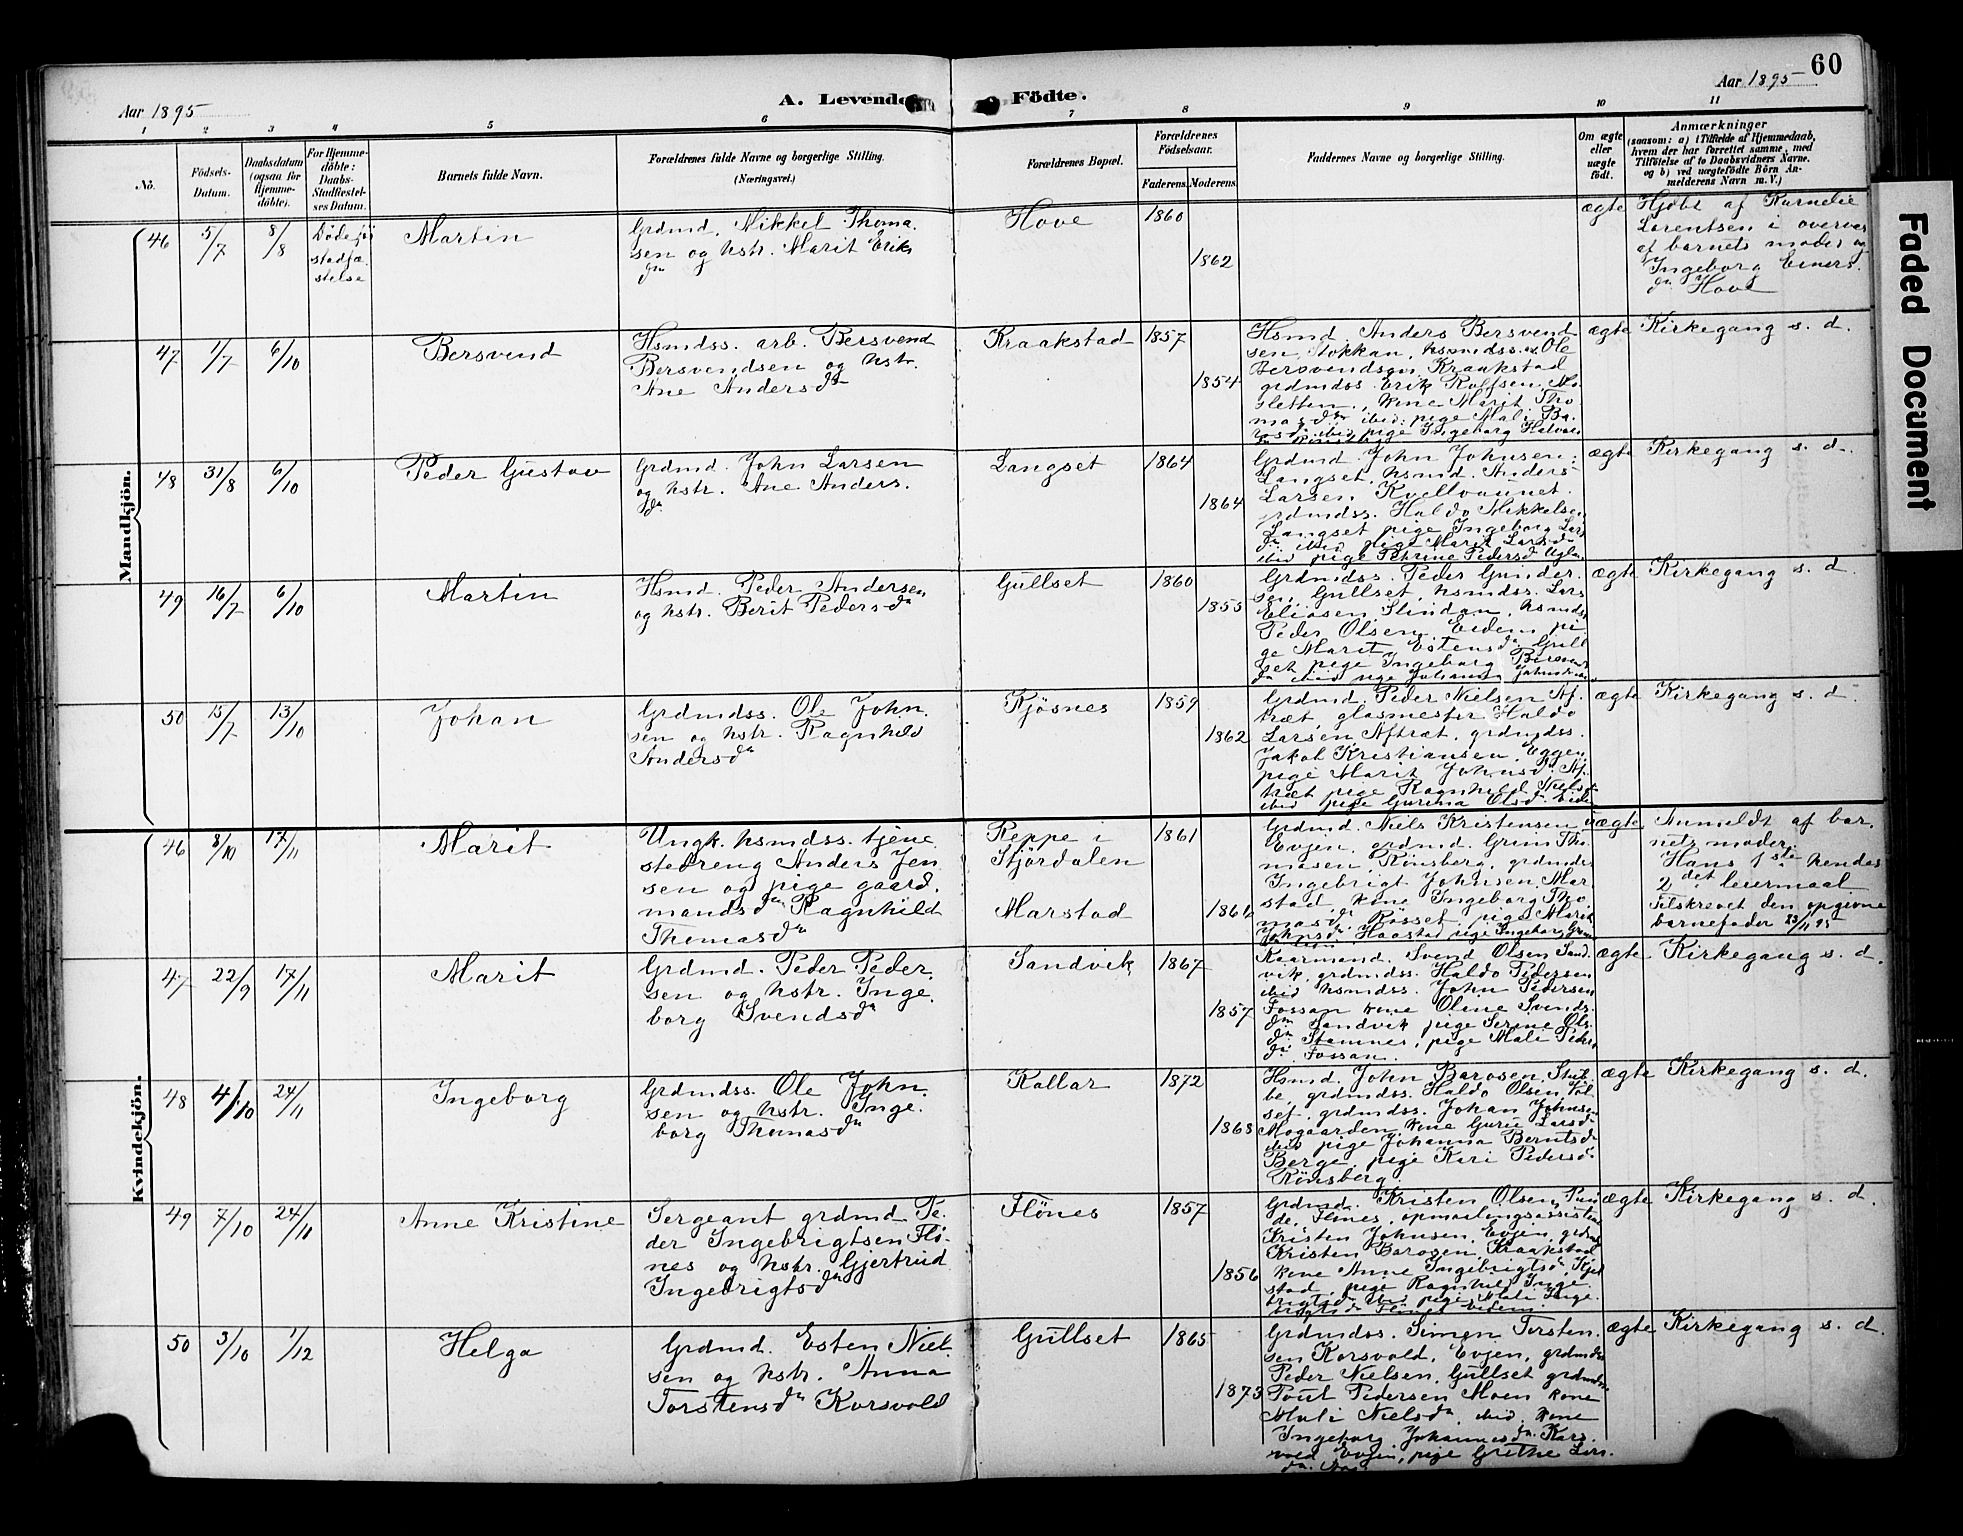 60
Aar 1895
A. Levende Födte.
Aar 1895
1 2 3 4 5 6 7 8 9 10 11
No.
Födsels-
Datum.
Daabsdatum
(ogsaa for
Hjemme-
döbte).
For Hjemme-
döbte:
Daabs-
Stadfæstel-
ses Datum.
Barnets fulde Navn.
Forældrenes fulde Navne og borgerlige Stilling.
(Næringsvei.)
Forældrenes Bopæl.
Forældrenes
Födselsaar.
Faderens.
Moderens.
Faddernes Navne og borgerlige Stilling.
Om ægte
eller
uægte
födt.
Anmærkninger
(saasom: a) i Tilfælde af Hjemmedaab,
hvem der har forrettet samme, med
Tilföielse af to Daabsvidners Navne,
og b) ved uægtefödte Börn An-
melderens Navn m. V.)
Mandkjön.
46 5/7 8/8
Döde för
stadfæ-
stelse
Martin
Grdmd. Mikkel Thoma-
sen og hstr. Marit Eriks
da
Hove
1860
1862
ægte
Hjdbt af Karnelie
Lorentsen i overvær
af barnets moder og
Ingeborg Einers.
da Hove
47 1/7 6/10
Bersvend
Hsmdss. arb. Bersvend
Bersvendsen og hstr.
Ane Andersda
Kraakstad
1857
1854
Hsmd. Anders Bersvend
sen Stokkan, hsmdss. Ole
Bersvendsen Kraakstad
grdmdss. Erik Rolfsen Mo-
sletten, kone Marit Tho-
masda ibid: pige Mali Ba-
pige Ingeborg Halvor
ægte
Kirkegang s. d.
48 31/8 6/10
Peder Gustav
Grdmd. John Larsen
og hstr. Ane Anders.
da
Langset
1864
1864
Grdmd. John Johnsen
Langset, hsmd. Anders
Larsen Kvellvaunet.
grdmdss. Haldo Mikkelsen
Langset pige Ingeborg Lars
da ibid pige Marit Larsda
ibid pige Petrine Pedersda
ægte
Kirkegang s. d.
49 16/7 6/10
Martin
Hsmd. Peder Andersen
og hstr. Berit Pedersda
Gullset
1860
1855
Grdmdss. Peder Gunder-
sen Gullset, hsmdss. Lars
Eliasen Slindan, hsmdss
Peder Olsen Eidem pi
ge Marit Estensda Gull
set pige Ingeborg Bersvend
da ibid pige Juliana
ægte
Kirkegang s. d.
50 15/7 13/10
Johan
Grdmdss. Ole John.
sen og hstr. Ragnhild
Andersda
Kjösnes
1859
1862
Grdmd Peder Nielsen Af-
træt, glasmester Haldo
Larsen Aftræt, grdmdss.
Jakob Kristiansen, Eggen
pige Marit Johnsda Af-
træt pige Ragnhild Nielsda
ibid pige Gurina Olsda
ægte
Kirkegang s. d.
Kvindekjön.
46 8/10 17/11
Marit
Ungk. hsmdss. tjene
stedreng Anders Jen
sen og pige gaard.
mandsda Ragnhild
Thomasda
Reppe i
Stjördalen
Marstad
1861
Grdmd. Niels Kristensen
Evjen, grdmd. Grim Tho
masen Rönsberg, grdmdss
Ingebrigt Johnsen Mar
stad kone Ingeborg Tho
masda Rösset, pige Marit
Johnsda Haastad pige Ingeborg
uægte
Anmeldt af bar.
nets moder.
Hans 1ste hendes
2det leiermaal
Tilskrevet den opgivne
barnefader 23/11 95
47 22/9 17/11
Marit
Grdmd. Peder Peder.
sen og hstr. Inge
borg Svendsda
Sandvik
1867
1857
Kaarmand. Svend Olsen Sand
vik, grdmdss. Haldo Pedersen
ibid hsmdss. John Pedersen
Fossan kone Oline Svends.
da Sandvik pige Serine Ols
da Stamnes, pige Mali Peders
da Fossan.
ægte
Kirkegang s. d.
48 4/10 24/11
Ingeborg
Grdmdss. Ole John.
sen og hstr. Inge.
borg Thomasda
Kallar
1872
1868
Hsmd. John Barosen Stub
be, grdmdss. Haldo Olsen Föl
set, grdmdss. Johan Johnsen
Mogaarden kone Guru Larsda
ibid pige Johanna Berntsda
Berge pige Kari Pedersda
Rönsberg.
ægte
Kirkegang s. d.
49 7/10 24/11
Anne Kristine
Sergeant grdmd Pe-
der Ingebrigtsen Flö-
nes og hstr. Gjertrud
Ingebrigtsda
Flönes
1857
1856
Grdmd. Kristen Olsen
Flönes, opmaalingsassistent
Kristen Johnsen, Evjen, grdmd
Kristen Barosen, Kraakstad
kone Anne Ingebrigtsda
stad, pige Ragnhild Inge
brigtsda ibid pige Mali Inge.
brigtsda Flönes
ægte
Kirkegang s. d.
50 3/10 1/12
Helga
Grdmd. Esten Niel
sen og hstr. Anna
Torstensda Korsvold
Gullset
1865
1873
Grdmdss. Simon Torsten.
sen Korsvold, Evjen, grdmdss
Peder Nielsen, Gullset grdmdss
Poul Pedersen Moen kone
Mali Nielsda ibid. kone
Ingeborg Johannesda Kors
vold Evjen, pige Grethe Lars
da
ægte
Kirkegang s. d.
Faded Document